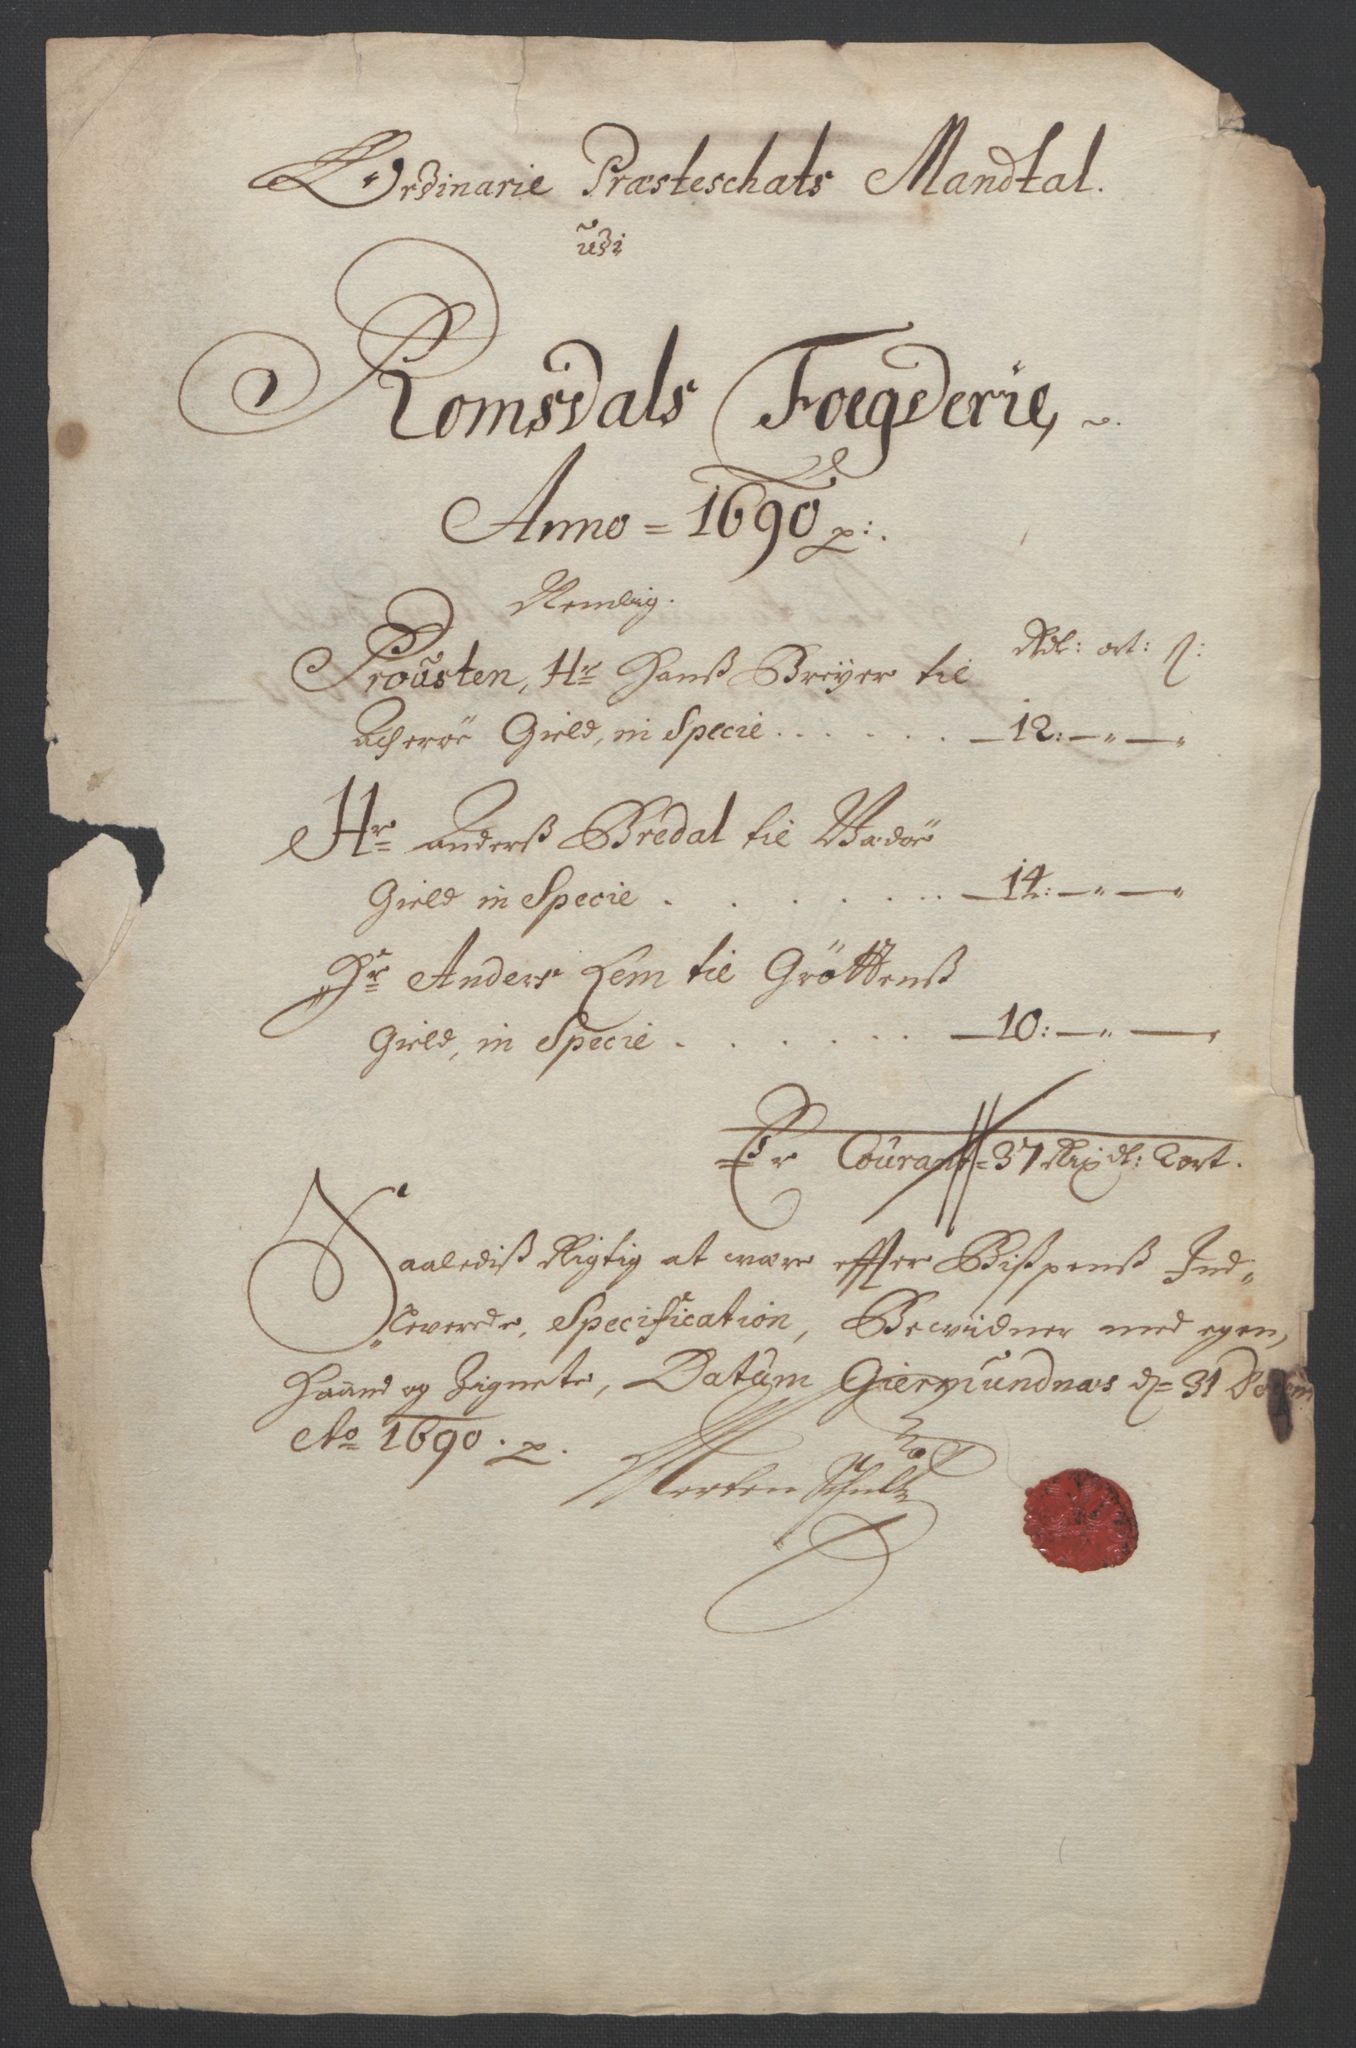 Ordinarie Præsteschats Mandtal.
udi
Romsdals Foegderie,
Anno = 1690 p:.
Nemlig.
Rdl: ort: s:
Proústen, Hr Hanß Breÿer til
Acherøe Gield, in Specie . . . . . . — 12: — " — "
Hr Anderß Bredal til Wædøe
Gield in Specie . . . . . . . — 14: — " — "
Hr Anders Lem til Grøttenß
Gield, in Specie . . . . . . — 10: — " — "
Er Courant = 37 Rix dl: 2 ort.
Saalediß Rigtig at være effter Bißpenß Ind=
leverede, Specification, Bewidner med egen
Haand og Zignete, Datum Giermundnæs d= 31 Decem
Ao 1690 . p.
Merten Schultz